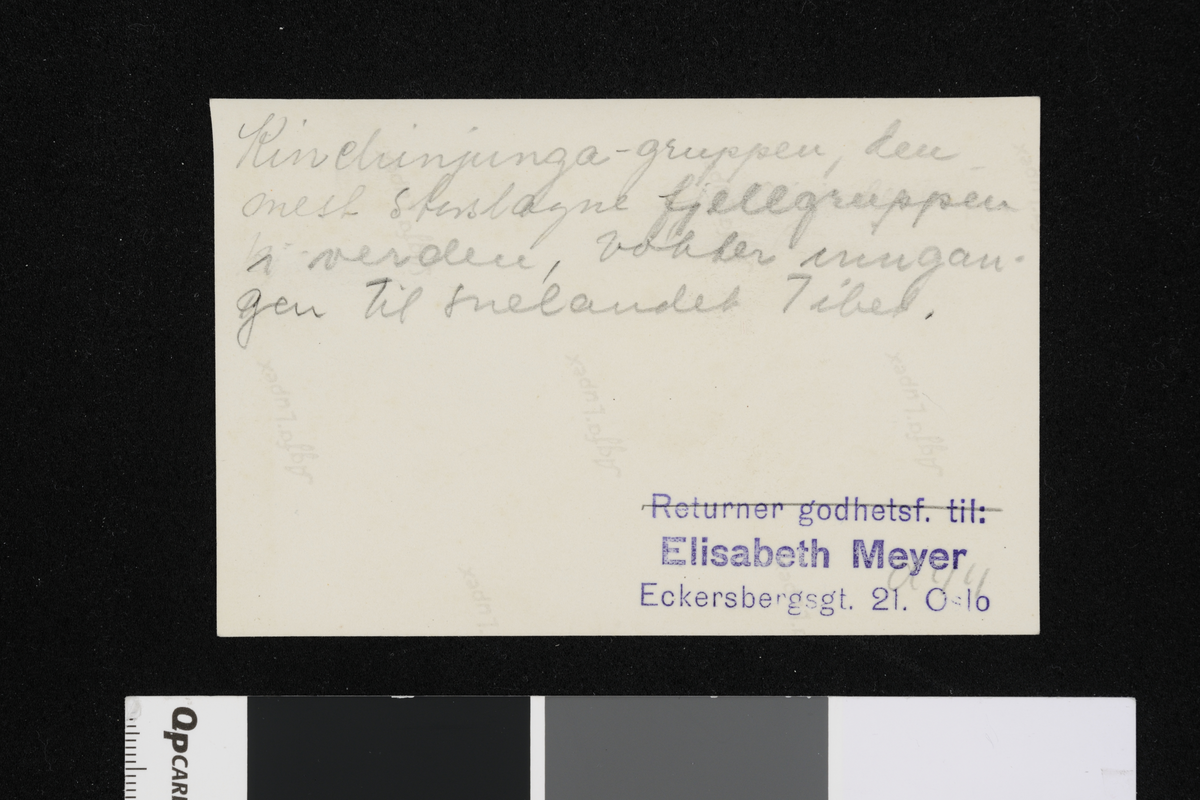 Kinchinjunga-gruppen, den
mest storslagne fjellgruppen
i verden, vokter inngan-
gen til snelandet Tibet.
Agfa Lupex
Agfa Lupex
Agfa Lupex
Returner godhetsf. til:
Elisabeth Meyer
Eckersbergsgt. 21. Oslo
Lupex
QPCARD